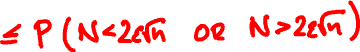 ≤ P(N<2ε√n OR N>2ε√n)